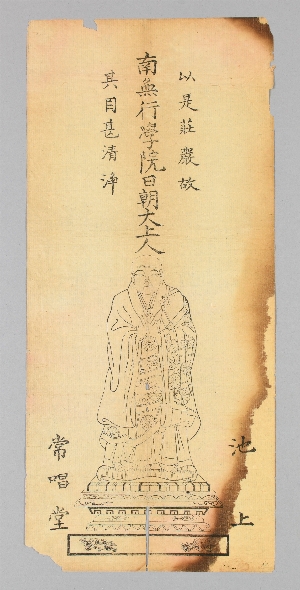 以是莊嚴故
南無行學院日朝大上人
其目甚清淨
池上
常唱堂